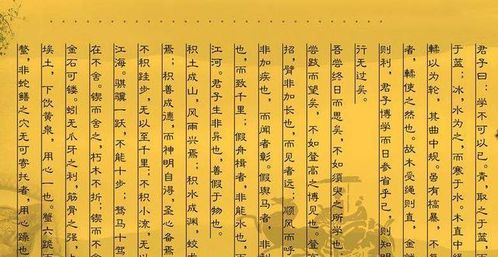 君子曰：学不可以已。青，取之于蓝
于蓝；冰，水为之，而寒于水。木直中绳
輮以为轮，其曲中规。虽有槁暴，不
者，輮使之然也。故木受绳则直，金就
则利，君子博学而日参省乎己，则知明
行无过矣。
吾尝终日而思矣，不如须臾之所学也
尝跂而望矣，不如登高之博见也。登高
招，臂非加长也，而见者远；顺风而呼
非加疾也，而闻者彰。假舆马者，非利
也，而致千里；假舟楫者，非能水也，
江河。君子生非异也，善假于物也。
积土成山，风雨兴焉；积水成渊，蛟
焉；积善成德，而神明自得，圣心备焉
不积跬步，无以至千里；不积小流，无以
江海。骐骥一跃，不能十步；驽马十驾
在不舍。锲而舍之，朽木不折；锲而不
金石可镂。蚓无爪牙之利，筋骨之强，
埃土，下饮黄泉，用心一也。蟹六跪而
螯，非蛇鳝之穴无可寄托者，用心躁也